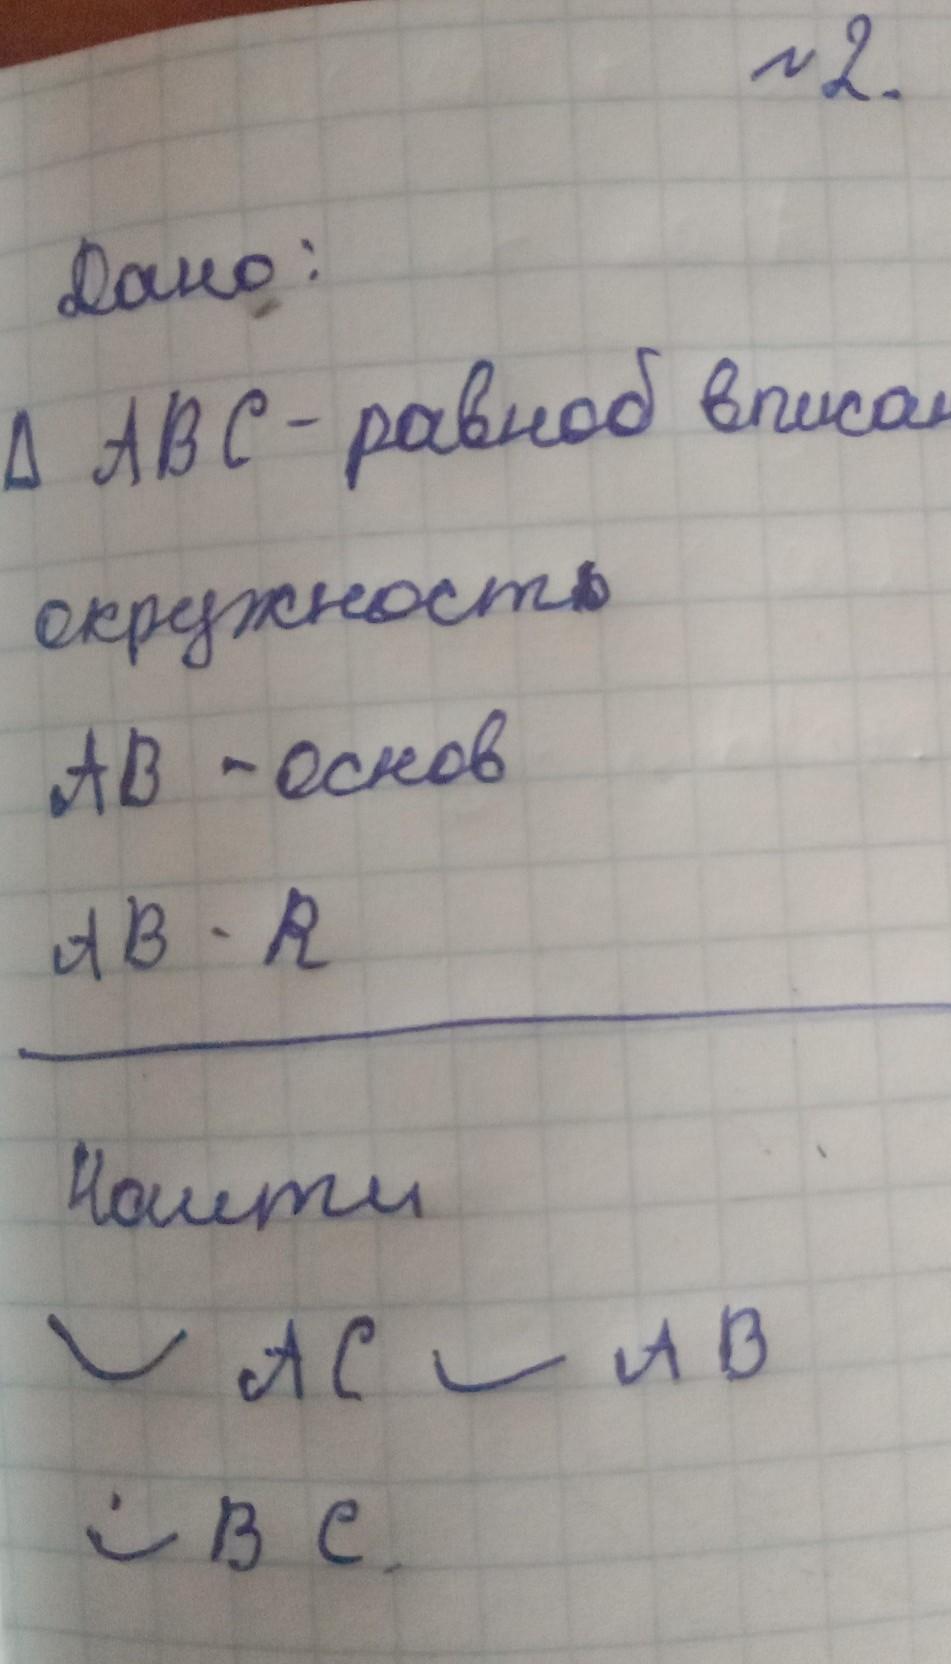 №2.
Дано:
Δ ABC - равноб вписан
окружность
AB - основ
AB - R
Найти
◡ AC ◡ AB
◡ BC.